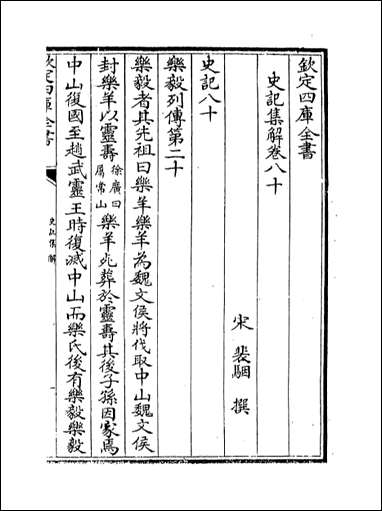 欽定四庫全書
史記集解卷八十
宋 裴駰 撰
史記八十
樂毅列傳第二十
樂毅者其先祖曰樂羊樂羊為魏文侯將伐取中山魏文侯
封樂羊以靈壽徐廣曰屬常山樂羊死葬於靈壽其後子孫因家焉
中山復國至趙武靈王時復滅中山而樂氏後有樂毅樂毅
欽定四庫全書
史記集解